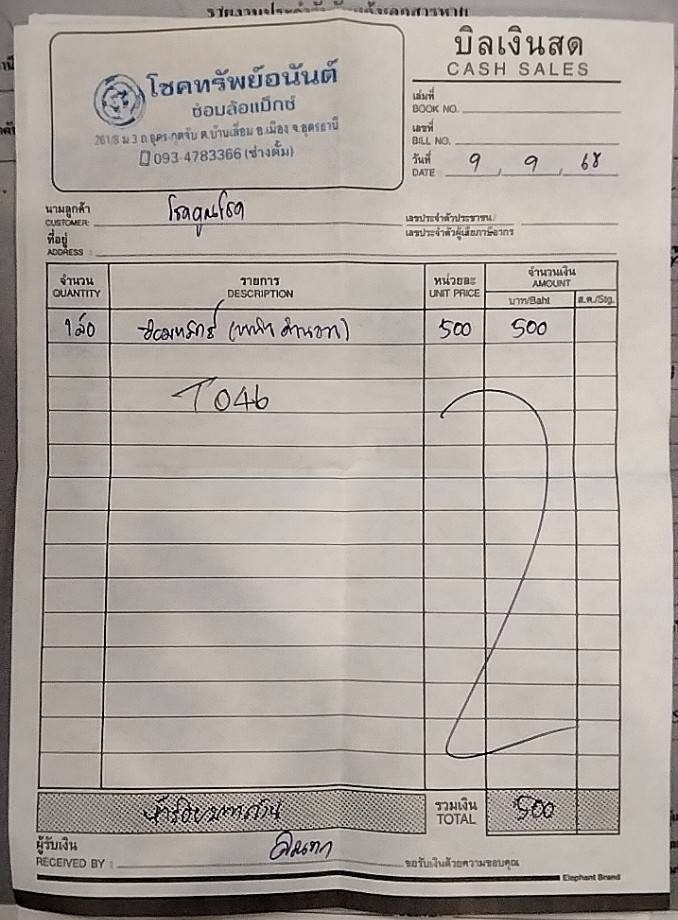 บิลเงินสด
CASH SALES
โชคทรัพย์อนันต์
ซ่อมล้อแม็กซ์
261/8 ม 3 ถ.อุดร-กุดจับ ต.บ้านเลื่อม อ.เมือง จ.อุดรธานี
093-4783366 (ช่างตั้ม)
เล่มที่
BOOK NO.
เลขที่
BILL NO.
วันที่ 9 9 68
DATE
นามลูกค้า
CUSTOMER:
เลขประจำตัวประชาชน/
เลขประจำตัวผู้เสียภาษีอากร
ที่อยู่
ADDRESS :
จำนวน รายการ หน่วยละ จำนวนเงิน
QUANTITY DESCRIPTION UNIT PRICE AMOUNT
บาท/Baht ส.ต./Stg.
1 ล้อ 500 500
T046
ห้าร้อยบาทถ้วน รวมเงิน 500
TOTAL
ผู้รับเงิน
RECEIVED BY :
ขอรับเงินด้วยความขอบคุณ
Elephant Brand